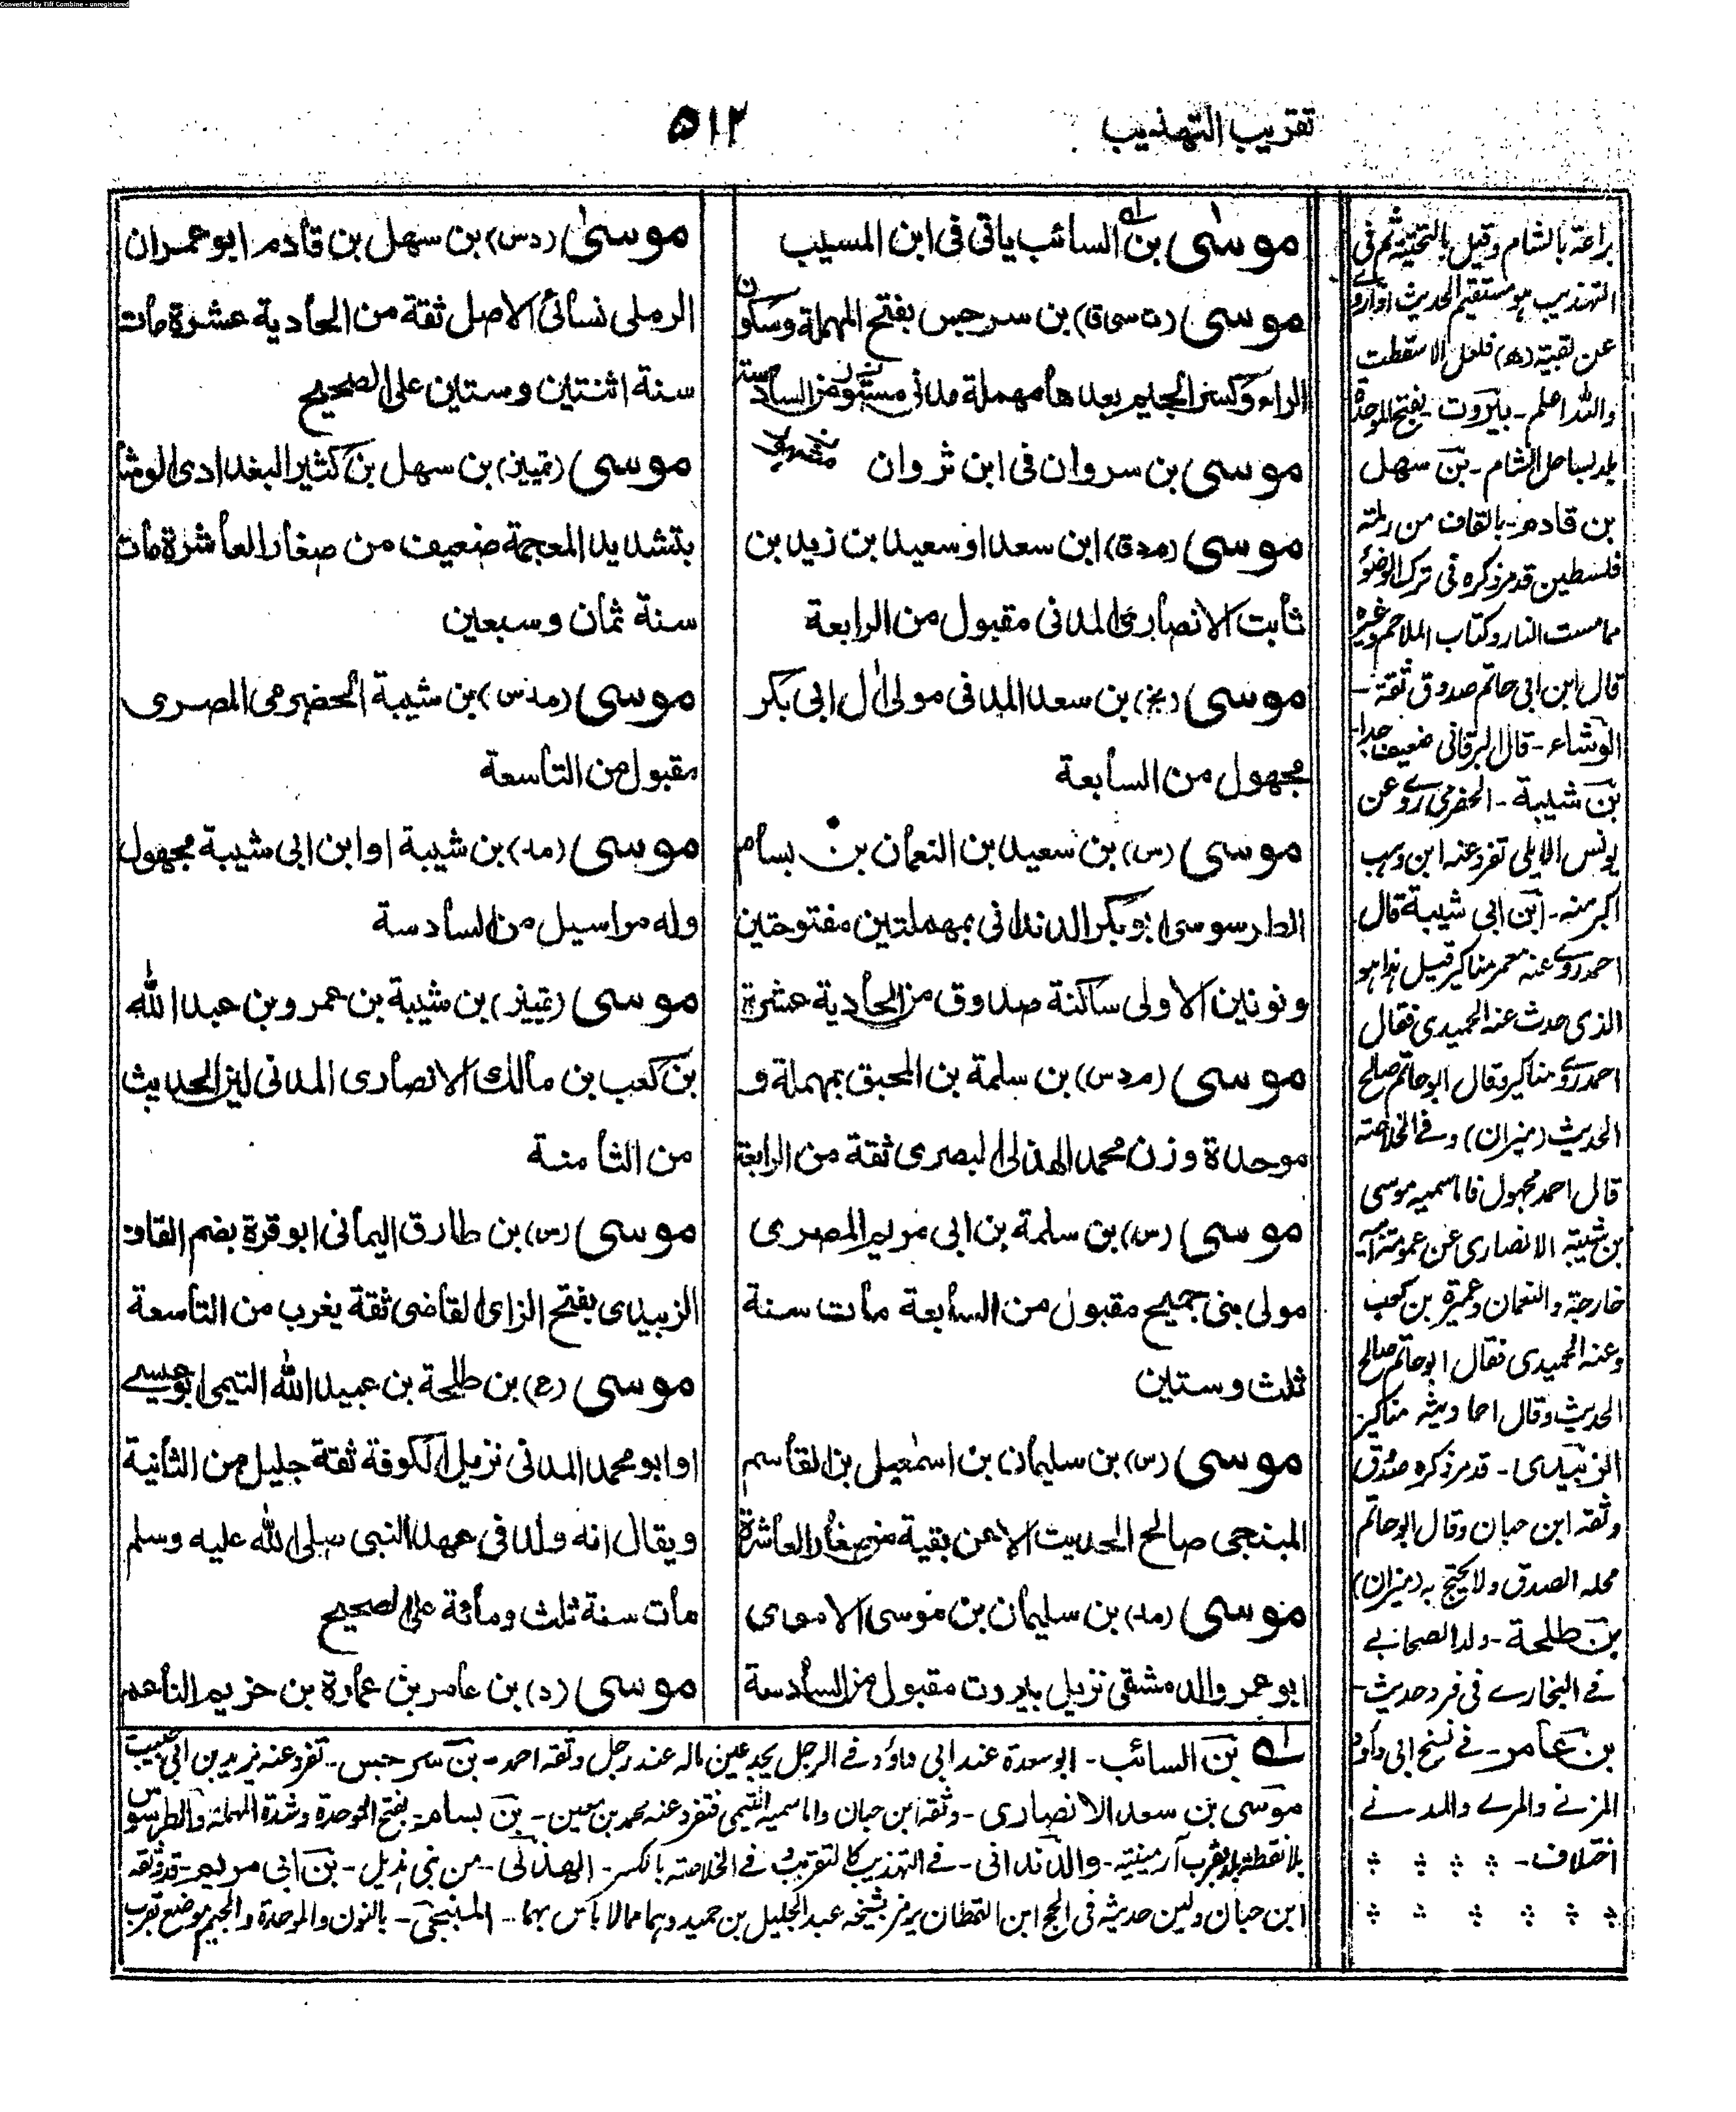 Converted by Tiff Combine - unregistered
تقريب التهذيب
٥١٢
موسى بن السائب ياتى فى ابن المسيب
موسى (ت سى ق) بن سرجس بفتح المهملة وسكون
الراء وكسر الجيم بعدها مهملة مدنى مستور من السادسة
موسى بن سروان فى ابن ثروان
موسى (مد ق) ابن سعد او سعيد بن زيد بن
ثابت الانصارى المدنى مقبول من الرابعة
موسى (بخ) بن سعد المدنى مولى ال ابى بكر
مجهول من السابعة
موسى (س) بن سعيد بن النعمان بن بسام
الطرسوسى ابو بكر الدندانى بمهملتين مفتوحتين
ونونين الاولى ساكنة صدوق من الحادية عشرة
موسى (م د س) بن سلمة بن المحبق بمهملة و
موحدة وزن محمد الهذلى البصرى ثقة من الرابعة
موسى (س) بن سلمة بن ابى مريم المصرى
مولى بنى جميح مقبول من السابعة مات سنة
ثلث وستين
موسى (س) بن سليمان بن اسمعيل بن القاسم
المبنجى صالح الحديث الا عن بقية من صغار العاشرة
موسى (مد) بن سليمان بن موسى الاموى
ابو عمر والد مشقى نزيل بيروت مقبول من السادسة
موسى (د س) بن سهل بن قادم ابو عمران
الرملى نسائى الاصل ثقة من الحادية عشرة مات
سنة اثنتين وستين على الصحيح
موسى (تمييز) بن سهل بن كثير البغدادى الوشا
بتشديد المعجمة ضعيف من صغار العاشرة مات
سنة ثمان وسبعين
موسى (مد س) بن شيبة الحضرمى المصرى
مقبول من التاسعة
موسى (مد) بن شيبة او ابن ابى شيبة مجهول
وله مراسيل من السادسة
موسى (تمييز) بن شيبة بن عمرو بن عبد الله
بن كعب بن مالك الانصارى المدنى لين الحديث
من الثامنة
موسى (س) بن طارق اليمانى ابو قرة بضم القاف
الزبيدى بفتح الزاى القاضى ثقة يغرب من التاسعة
موسى (ع) بن طلحة بن عبيد الله التيمى ابو عيسى
او ابو محمد المدنى نزيل الكوفة ثقة جليل من الثانية
ويقال انه ولد فى عهد النبى صلى الله عليه وسلم
مات سنة ثلث ومائة على الصحيح
موسى (د) بن عامر بن عمارة بن خريم الناعم
له بن السائب - ابو سعدة عند ابى داؤد فى الرجل يجد عين ماله عند رجل وثقه احمد - بن سرجس - تفرد عنه يزيد بن ابى حبيب
موسى بن سعد الانصارى - وثقه ابن حبان واما سميه التيمى فتفرد عنه محمد بن معين - بن بسام - بفتح الموحدة وشدة المهملة والطرسوسى
بلا نقطة بلد بقرب آرمينية - والدندانى - فى التهذيب كالتقريب وفى الخلاصة بالكسر - الهذلى - من بنى هذيل - بن ابى مريم - قد وثقه
ابن حبان ولين حديثه فى الحج ابن القطان يرمز بشيخه عبد الجليل بن حميد وهما ممالا باس بهما - المنبجى - بالنون والموحدة والجيم موضع بقرب
براعة بالشام وقيل بالتحتية ثم فى
التهذيب هو مستقيم الحديث اذا روى
عن بقية (ه) فلعل الا سقطت
والله اعلم - بيروت بفتح الموحدة
بلد بساحل الشام - بن سهل
بن قادم - بالقاف من رملة
فلسطين قد مر ذكره فى ترك الوضوء
مما مست النار وكتاب الملاحم وغيره
قال ابن ابى حاتم صدوق ثقة -
الوشاء - قال البرقانى ضعيف جدا -
بن شيبة - الحضرمى روى عن
يونس الايلى تفرد عنه ابن وهب
اكبر منه - ابن ابى شيبة قال
احمد روى عنه معمر مناكير قيل هذا هو
الذى حدث عنه الحميدى فقال
احمد روى مناكير وقال ابو حاتم صالح
الحديث (ميزان) وفى الخلاصة
قال احمد مجهول فاما سميه موسى
بن شيبة الانصارى عن عمومة ابيه
خارجة والنعمان وعميرة بن كعب
وعنه الحميدى فقال ابو حاتم صالح
الحديث وقال احاديثه مناكير
الزبيدى - قد مر ذكره صدوق
وثقه ابن حبان وقال ابو حاتم
محله الصدق ولا يحتج به (ميزان)
بن طلحة - ولد الصحابى
فى البخارى فى فرد حديث -
بن عامر - فى نسخ ابى داود
المزنى والمرى والمدنى
اختلاف -